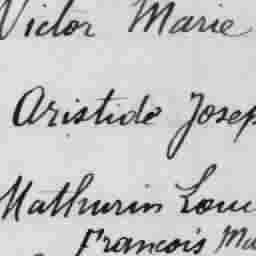 Victor Marie
Aristide Josep
Mathurin Loui
Francois Ma